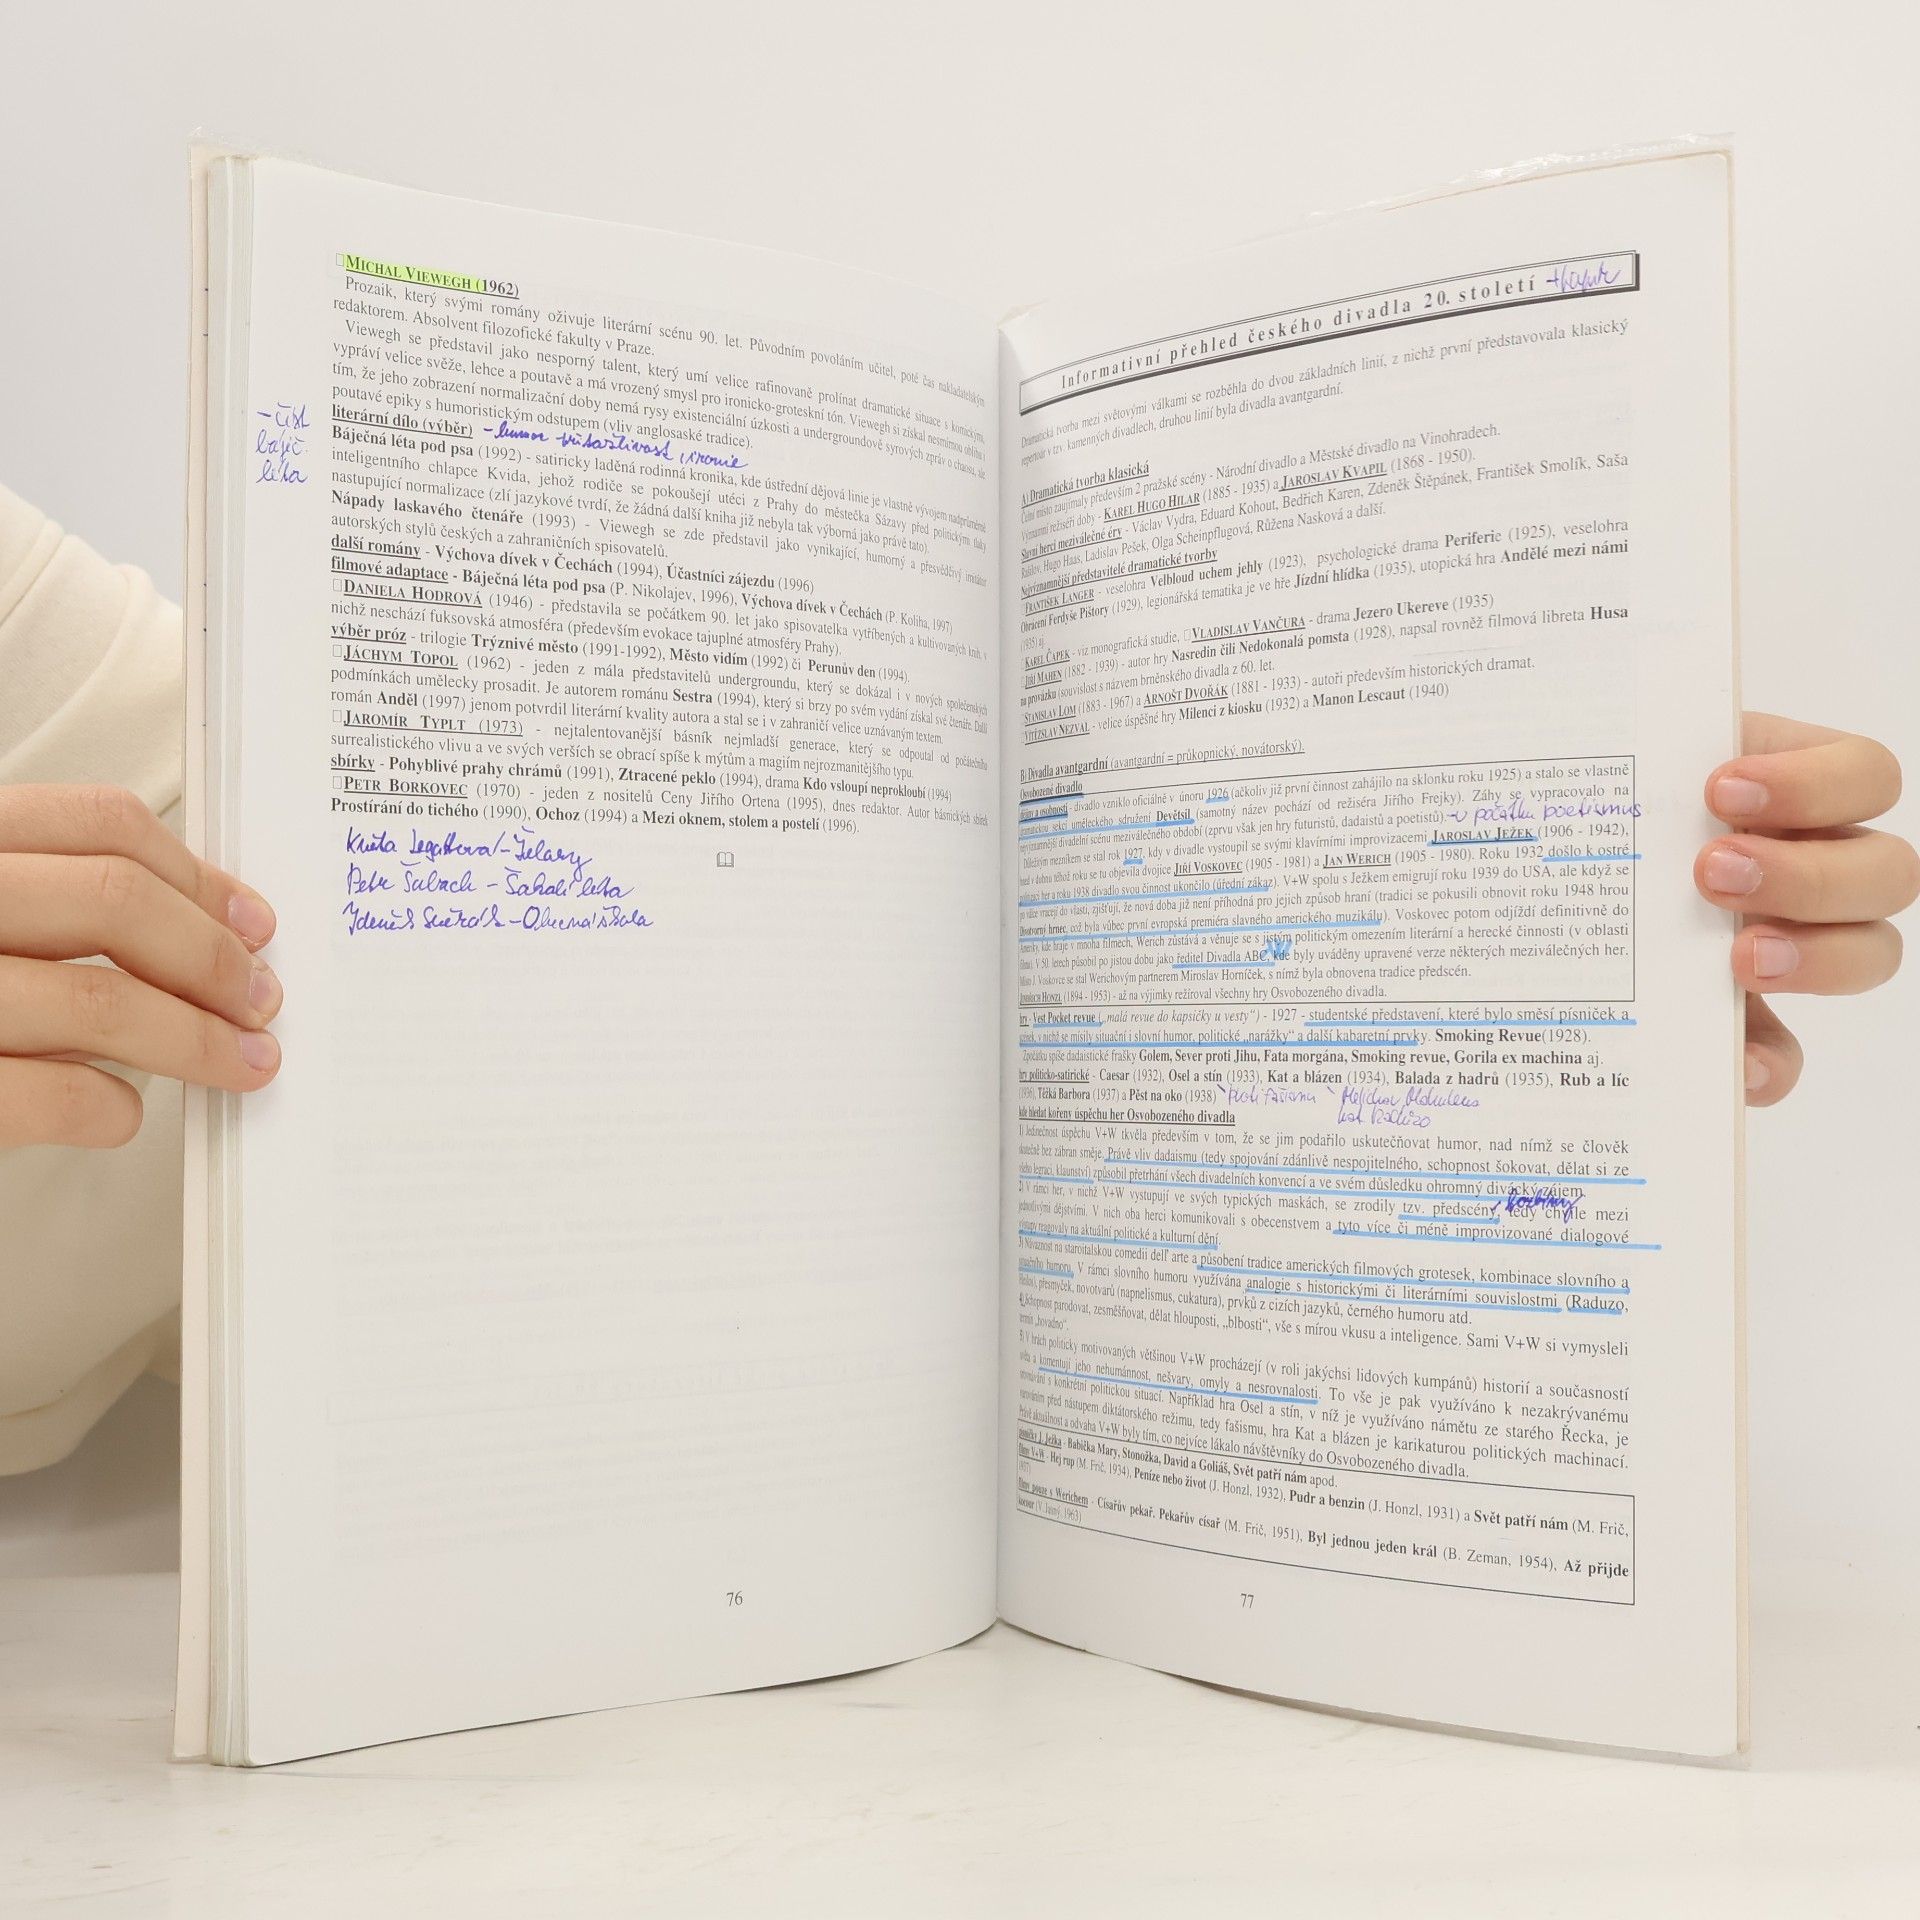 MICHAL VIEWEGH (1962)
Prozaik, který svými romány oživuje literární scénu 90. let. Původním povoláním učitel, poté čas nakladatelským
redaktorem. Absolvent filozofické fakulty v Praze.
Viewegh se představil jako nesporný talent, který umí velice rafinovaně prolínat dramatické situace s komickými,
vypráví velice svěže, lehce a poutavě a má vrozený smysl pro ironicko-groteskní tón. Viewegh si získal nesmírnou oblibu i
tím, že jeho zobrazení normalizační doby nemá rysy existenciální úzkosti a undergroundově syrových zpráv o chaosu, ale
poutavé epiky s humoristickým odstupem (vliv anglosaské tradice).
literární dílo (výběr) - humor přitažlivost, ironie
- číst
báječ.
léta
Báječná léta pod psa (1992) - satiricky laděná rodinná kronika, kde ústřední dějová linie je vlastně vývojem nadprůměrně
inteligentního chlapce Kvida, jehož rodiče se pokoušejí utéci z Prahy do městečka Sázavy před politickými tlaky
nastupující normalizace (zlí jazykové tvrdí, že žádná další kniha již nebyla tak výborná jako právě tato).
Nápady laskavého čtenáře (1993) - Viewegh se zde představil jako vynikající, humorný a přesvědčivý imitátor
autorských stylů českých a zahraničních spisovatelů.
další romány - Výchova dívek v Čechách (1994), Účastníci zájezdu (1996)
filmové adaptace - Báječná léta pod psa (P. Nikolajev, 1996), Výchova dívek v Čechách (P. Koliha, 1997)
DANIELA HODROVÁ (1946) - představila se počátkem 90. let jako spisovatelka vytříbených a kultivovaných knih, v
nichž neschází fuksovská atmosféra (především evokace tajuplné atmosféry Prahy).
výběr próz - trilogie Trýznivé město (1991-1992), Město vidím (1992) či Perunův den (1994).
JÁCHYM TOPOL (1962) - jeden z mála představitelů undergroundu, který se dokázal i v nových společenských
podmínkách umělecky prosadit. Je autorem románu Sestra (1994), který si brzy po svém vydání získal své čtenáře. Další
román Anděl (1997) jenom potvrdil literární kvality autora a stal se i v zahraničí velice uznávaným textem.
JAROMÍR TYPLT (1973) - nejtalentovanější básník nejmladší generace, který se odpoutal od počátečního
surrealistického vlivu a ve svých verších se obrací spíše k mýtům a magiím nejrozmanitějšího typu.
sbírky - Pohyblivé prahy chrámů (1991), Ztracené peklo (1994), drama Kdo vsloupí neprokloubí (1994)
PETR BORKOVEC (1970) - jeden z nositelů Ceny Jiřího Ortena (1995), dnes redaktor. Autor básnických sbírek
Prostírání do tichého (1990), Ochoz (1994) a Mezi oknem, stolem a postelí (1996).
Květa Legátová - Želary
Petr Šabach - Šakalí léta
Zdeněk Svěrák - Obecná škola
76
Informativní přehled českého divadla 20. století
Dramatická tvorba mezi světovými válkami se rozběhla do dvou základních linií, z nichž první představovala klasický
repertoár v tzv. kamenných divadlech, druhou linií byla divadla avantgardní.
A) Dramatická tvorba klasická
Čelní místo zaujímaly především 2 pražské scény - Národní divadlo a Městské divadlo na Vinohradech.
Významní režiséři doby - KAREL HUGO HILAR (1885 - 1935) a JAROSLAV KVAPIL (1868 - 1950).
Slavní herci meziválečné éry - Václav Vydra, Eduard Kohout, Bedřich Karen, Zdeněk Štěpánek, František Smolík, Saša
Rašilov, Hugo Haas, Ladislav Pešek, Olga Scheinpflugová, Růžena Nasková a další.
Nejvýznamnější představitelé dramatické tvorby
FRANTIŠEK LANGER - veselohra Velbloud uchem jehly (1923), psychologické drama Periferie (1925), veselohra
Obrácení Ferdyše Pištory (1929), legionářská tematika je ve hře Jízdní hlídka (1935), utopická hra Andělé mezi námi
(1935) aj.
KAREL ČAPEK - viz monografická studie, VLADISLAV VANČURA - drama Jezero Ukereve (1935)
JIŘÍ MAHEN (1882 - 1939) - autor hry Nasredin čili Nedokonalá pomsta (1928), napsal rovněž filmová libreta Husa
na provázku (souvislost s názvem brněnského divadla z 60. let.
STANISLAV LOM (1883 - 1967) a ARNOŠT DVOŘÁK (1881 - 1933) - autoři především historických dramat.
VÍTĚZSLAV NEZVAL - velice úspěšné hry Milenci z kiosku (1932) a Manon Lescaut (1940)
B) Divadla avantgardní (avantgardní = průkopnický, novátorský).
Osvobozené divadlo
dějiny a osobnosti - divadlo vzniklo oficiálně v únoru 1926 (ačkoliv již první činnost zahájilo na sklonku roku 1925) a stalo se vlastně
dramatickou sekcí uměleckého sdružení Devětsil (samotný název pochází od režiséra Jiřího Frejky). Záhy se vypracovalo na
nejvýznamnější divadelní scénu meziválečného období (zprvu však jen hry futuristů, dadaistů a poetistů). - v počátku poetismus
Důležitým mezníkem se stal rok 1927, kdy v divadle vystoupil se svými klavírními improvizacemi JAROSLAV JEŽEK (1906 - 1942),
hned v dubnu téhož roku se tu objevila dvojice JIŘÍ VOSKOVEC (1905 - 1981) a JAN WERICH (1905 - 1980). Roku 1932 došlo k ostré
politizaci her a roku 1938 divadlo svou činnost ukončilo (úřední zákaz). V+W spolu s Ježkem emigrují roku 1939 do USA, ale když se
po válce vracejí do vlasti, zjišťují, že nová doba již není příhodná pro jejich způsob hraní (tradici se pokusili obnovit roku 1948 hrou
Divotvorný hrnec, což byla vůbec první evropská premiéra slavného amerického muzikálu). Voskovec potom odjíždí definitivně do
Ameriky, kde hraje v mnoha filmech, Werich zůstává a věnuje se s jistým politickým omezením literární a herecké činnosti (v oblasti
filmu). V 50. letech působil po jistou dobu jako ředitel Divadla ABC, kde byly uváděny upravené verze některých meziválečných her.
Místo J. Voskovce se stal Werichovým partnerem Miroslav Horníček, s nímž byla obnovena tradice předscén.
JINDŘICH HONZL (1894 - 1953) - až na výjimky režíroval všechny hry Osvobozeného divadla.
hry - Vest Pocket revue („malá revue do kapsičky u vesty“) - 1927 - studentské představení, které bylo směsí písniček a
scének, v nichž se mísily situační i slovní humor, politické „narážky“ a další kabaretní prvky. Smoking Revue(1928).
Zpočátku spíše dadaistické frašky Golem, Sever proti Jihu, Fata morgána, Smoking revue, Gorila ex machina aj.
hry politicko-satirické - Caesar (1932), Osel a stín (1933), Kat a blázen (1934), Balada z hadrů (1935), Rub a líc
(1936), Těžká Barbora (1937) a Pěst na oko (1938) proti fašismu
kde hledat kořeny úspěchu her Osvobozeného divadla
1) Jedinečnost úspěchu V+W tkvěla především v tom, že se jim podařilo uskutečňovat humor, nad nímž se člověk
skutečně bez zábran směje. Právě vliv dadaismu (tedy spojování zdánlivě nespojitelného, schopnost šokovat, dělat si ze
všeho legraci, klaunství) způsobil přetrhání všech divadelních konvencí a ve svém důsledku ohromný divácký zájem.
2) V rámci her, v nichž V+W vystupují ve svých typických maskách, se zrodily tzv. předscény, tedy chvíle mezi
jednotlivými dějstvími. V nich oba herci komunikovali s obecenstvem a tyto více či méně improvizované dialogové
výstupy reagovaly na aktuální politické a kulturní dění.
3) Návaznost na staroitalskou comedii dell' arte a působení tradice amerických filmových grotesek, kombinace slovního a
situačního humoru. V rámci slovního humoru využívána analogie s historickými či literárními souvislostmi (Raduzo,
Helios), přesmyček, novotvarů (napnelismus, cukatura), prvků z cizích jazyků, černého humoru atd.
4) Schopnost parodovat, zesměšňovat, dělat hlouposti, „blbosti“, vše s mírou vkusu a inteligence. Sami V+W si vymysleli
termín „hovadno“.
5) V hrách politicky motivovaných většinou V+W procházejí (v roli jakýchsi lidových kumpánů) historií a současností
světa a komentují jeho nehumánnost, nešvary, omyly a nesrovnalosti. To vše je pak využíváno k nezakrývanému
srovnávání s konkrétní politickou situací. Například hra Osel a stín, v níž je využíváno námětu ze starého Řecka, je
varováním před nástupem diktátorského režimu, tedy fašismu, hra Kat a blázen je karikaturou politických machinací.
Právě aktuálnost a odvaha V+W byly tím, co nejvíce lákalo návštěvníky do Osvobozeného divadla.
písničky J. Ježka - Babička Mary, Stonožka, David a Goliáš, Svět patří nám apod.
filmy V+W - Hej rup (M. Frič, 1934), Peníze nebo život (J. Honzl, 1932), Pudr a benzin (J. Honzl, 1931) a Svět patří nám (M. Frič,
1937)
filmy pouze s Werichem - Císařův pekař. Pekařův císař (M. Frič, 1951), Byl jednou jeden král (B. Zeman, 1954), Až přijde
kocour (V. Jasný, 1963)
77